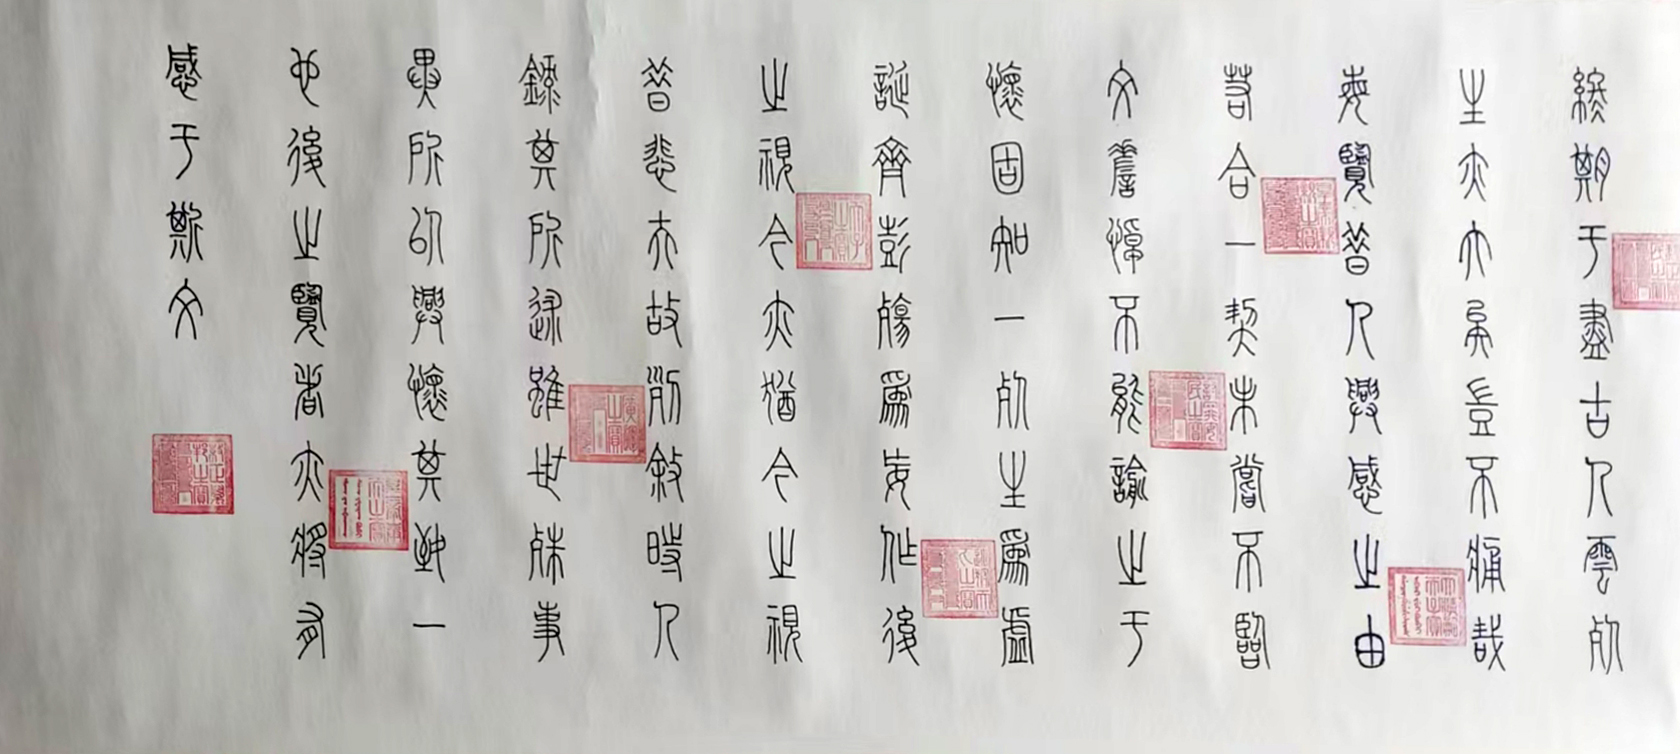 終期于盡古人雲死
生亦大矣豈不痛哉
每覽昔人興感之由
若合一契未嘗不臨
文嗟悼不能諭之于
懷固知一死生爲虛
誕齊彭殤爲妄作後
之視今亦猶今之視
昔悲夫故列敘時人
錄其所述雖世殊事
異所以興懷其致一
也後之覽者亦將有
感于斯文